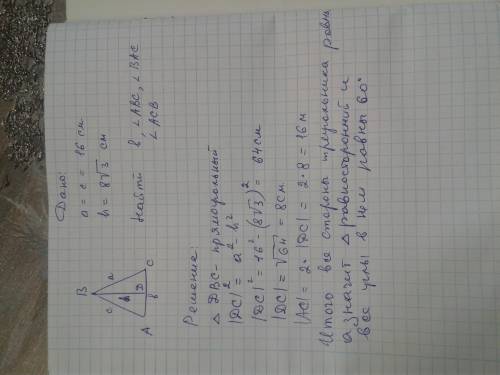 Дано:
a = c = 16 см
h = 8√3 см
Найти b, ∠ABC, ∠BAC
∠ACB
B
c
a
h
D
A
b
C
Решение:
△ DBC - прямоугольный
|DC|² = a² - h²
|DC|² = 16² - (8√3)² = 64 см
|DC| = √64 = 8 см
|AC| = 2·|DC| = 2·8 = 16 м
Итого все стороны треугольника равны
а значит △ равносторонний и
все углы в нем равны 60°